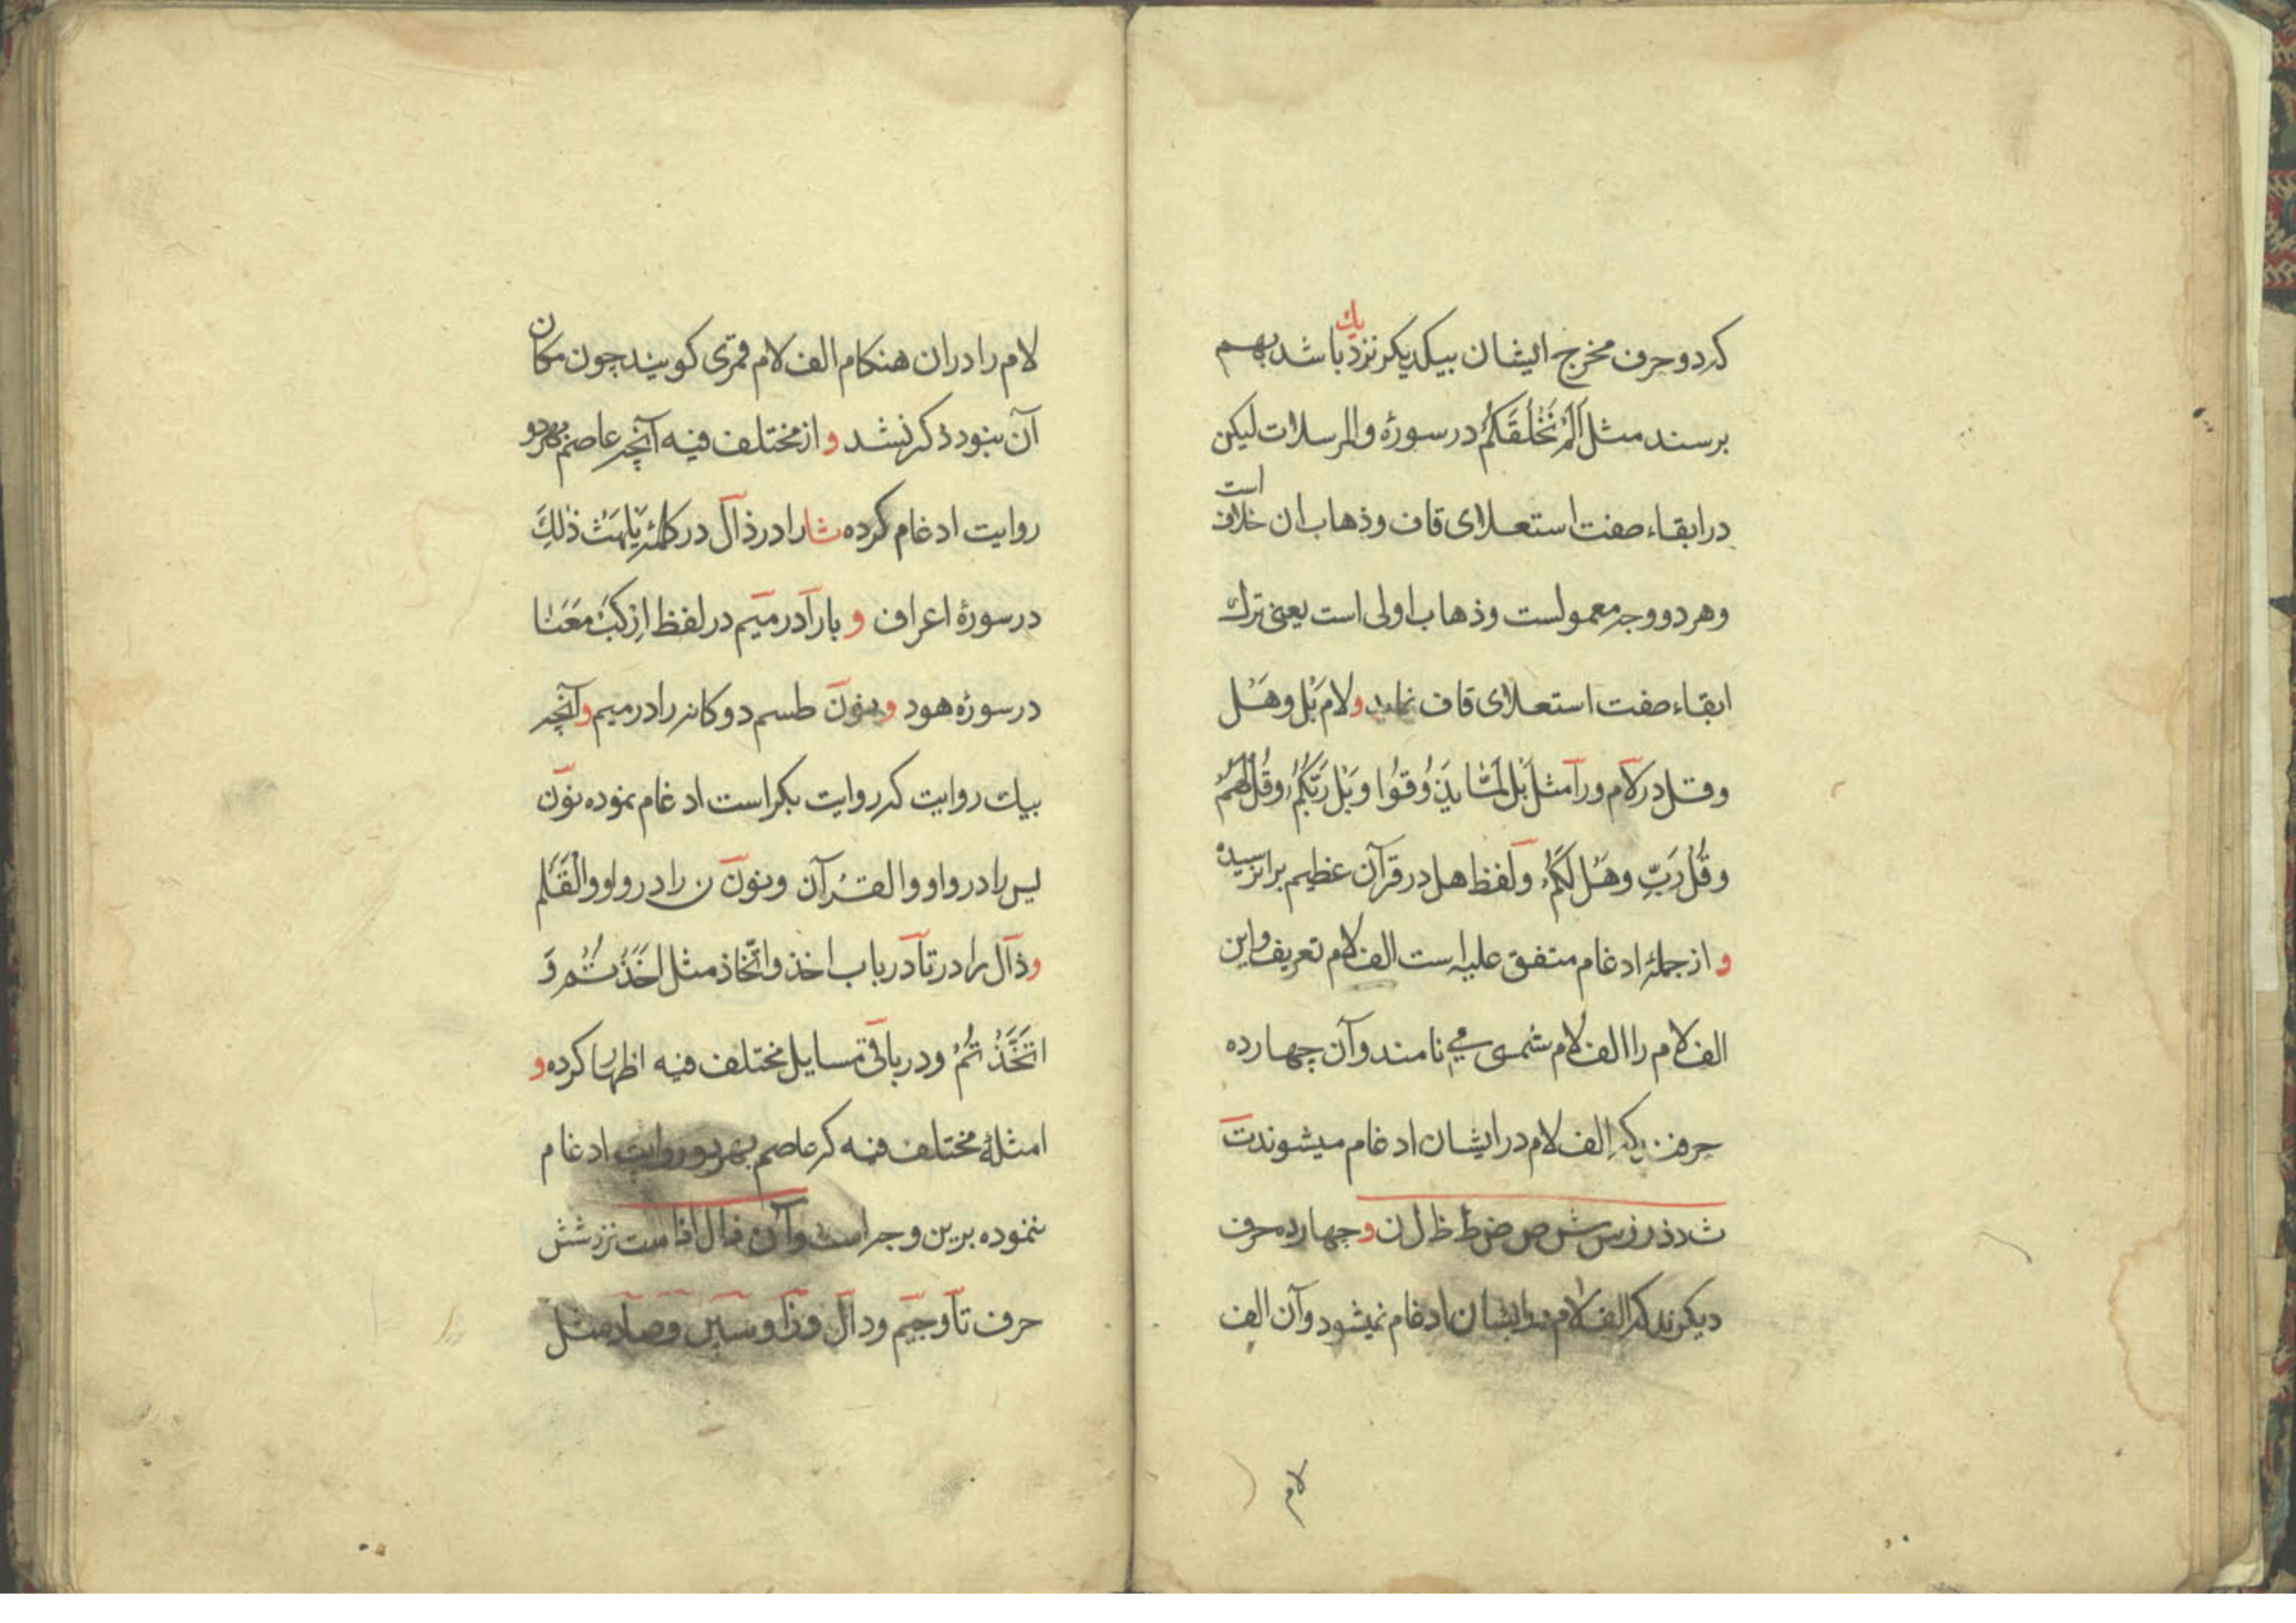 که دو حرف مخرج ایشان بیکدیکر نزدیك باشد بهم
برسند مثل اَلَمْ نَخْلُقْكُمْ در سورۀ والمرسلات لیکن
در ابقاء صفت استعلای قاف و ذهاب ان خلاف است
وهر دو وجه معمولست وذهاب اولی است یعنی ترك
ابقاء صفت استعلای قاف نمایند و لام بَلْ وهَلْ
وقل در لام ورا مثل بَلْ لَمَّا یَذُوقُوا وَبَلْ رَبُّکُمْ وقُلْ لَهُمْ
وقُلْ رَبِّ وهَلْ لَکُمْ ولفظ هل در قرآن عظیم برا نرسیده
و از جملۀ ادغام متفق علیه است الف لام تعریف واین
الف لام را الف لام شمسی می نامند وآن چهارده
حرف یکه الف لام در ایشان ادغام میشوند ت
ث د ذ ر ز س ش ص ض ط ظ ل ن و چهارده حرف
دیکرند که الف لام در ایشان ادغام نمیشود وآن الف
لام
لام را دران هنکام الف لام قمری کویند چون مکان
آن نبود ذکر نشد و از مختلف فیه آنچه عاصم بهر دو
روایت ادغام کرده ثا را در ذال در کلمۀ یَلْهَثْ ذٰلِكَ
در سورۀ اعراف و با را در میم در لفظ اِرْکَبْ مَعَنٰا
در سورۀ هود و نون طسم دوکانه را در میم و آنچه
بیك روایت که روایت بکر است ادغام نموده نون
یس را در واو والقرآن ونون ن را در واو والْقَلَمِ
و ذال را در تا در باب اخذ واتّخاذ مثل اَخَذْتُمْ وَ
اتَّخَذْتُمْ ودر باقی مسایل مختلف فیه اظهار کرده و
امثلۀ مختلف فیه که عاصم بهر دو روایت ادغام
ننموده برین وجه است وآن ذال اذ است نزد شش
حرف تا وجیم ودال وزا وسین وصاد مثل